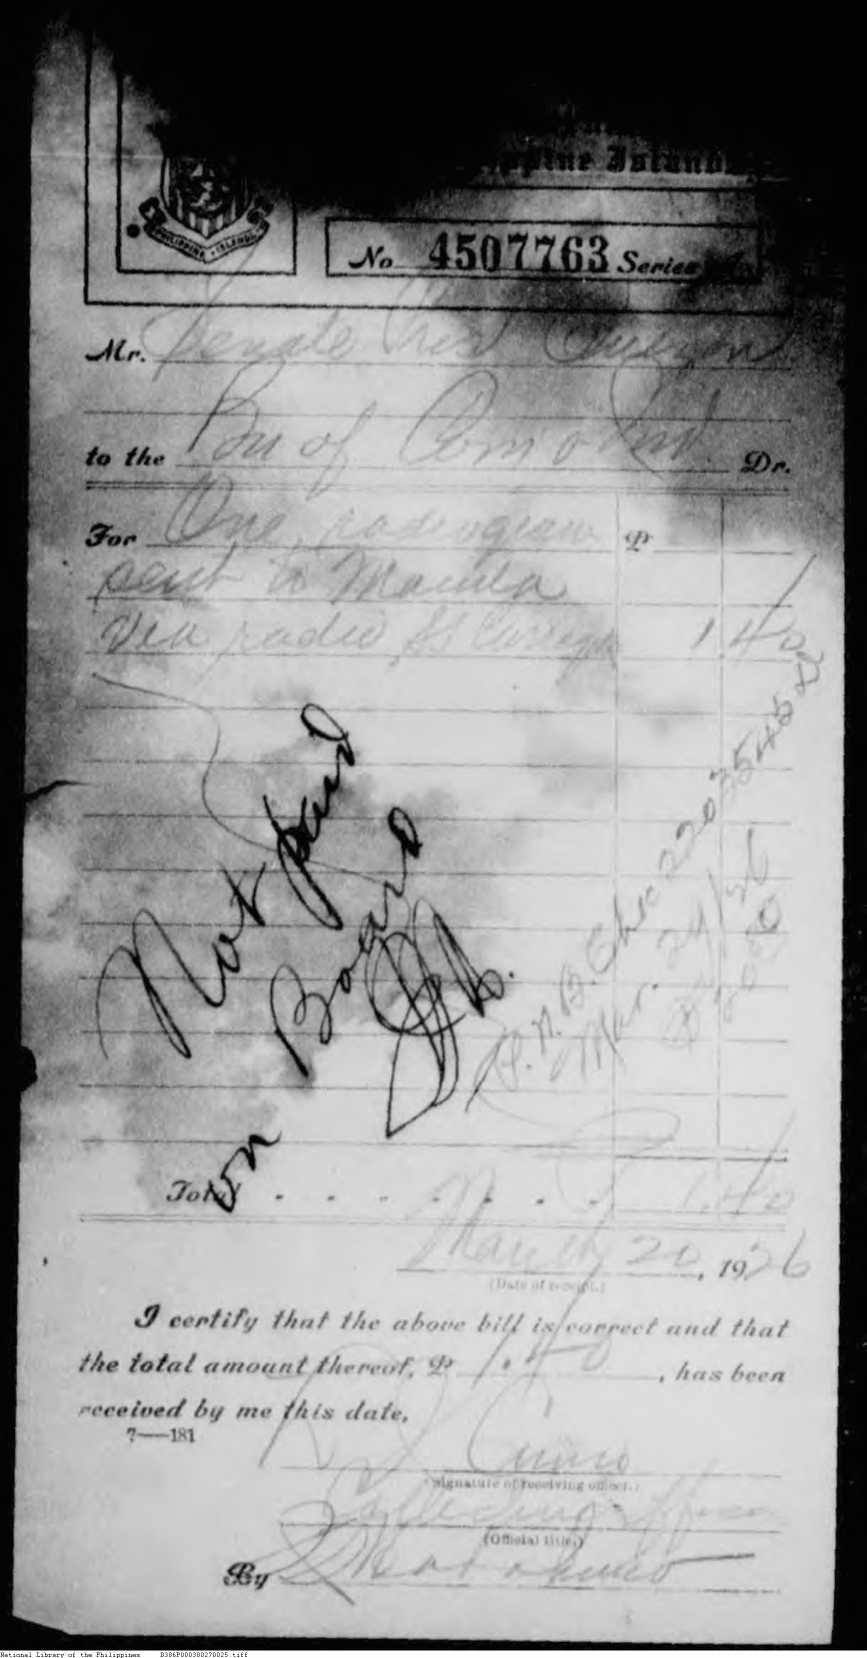 Philippine Islands
PHILIPPINE ISLANDS
No. 4507763 Series
Mr. Senate Pres Quezon
to the Bu of Com & Ind. Dr.
For One radiogram ₱
sent to Manila
via radio SS 1 40
Not paid
on Board
P.N.B. Chec 2203545
Mar. 29/26
Total 1.40
March 20, 1926
(Date of receipt.)
I certify that the above bill is correct and that
the total amount thereof, ₱ 1.40, has been
received by me this date.
7—181
(Signature of receiving officer.)
Collecting Officer
(Official title.)
By
National Library of the Philippines B386P000300270025.tiff